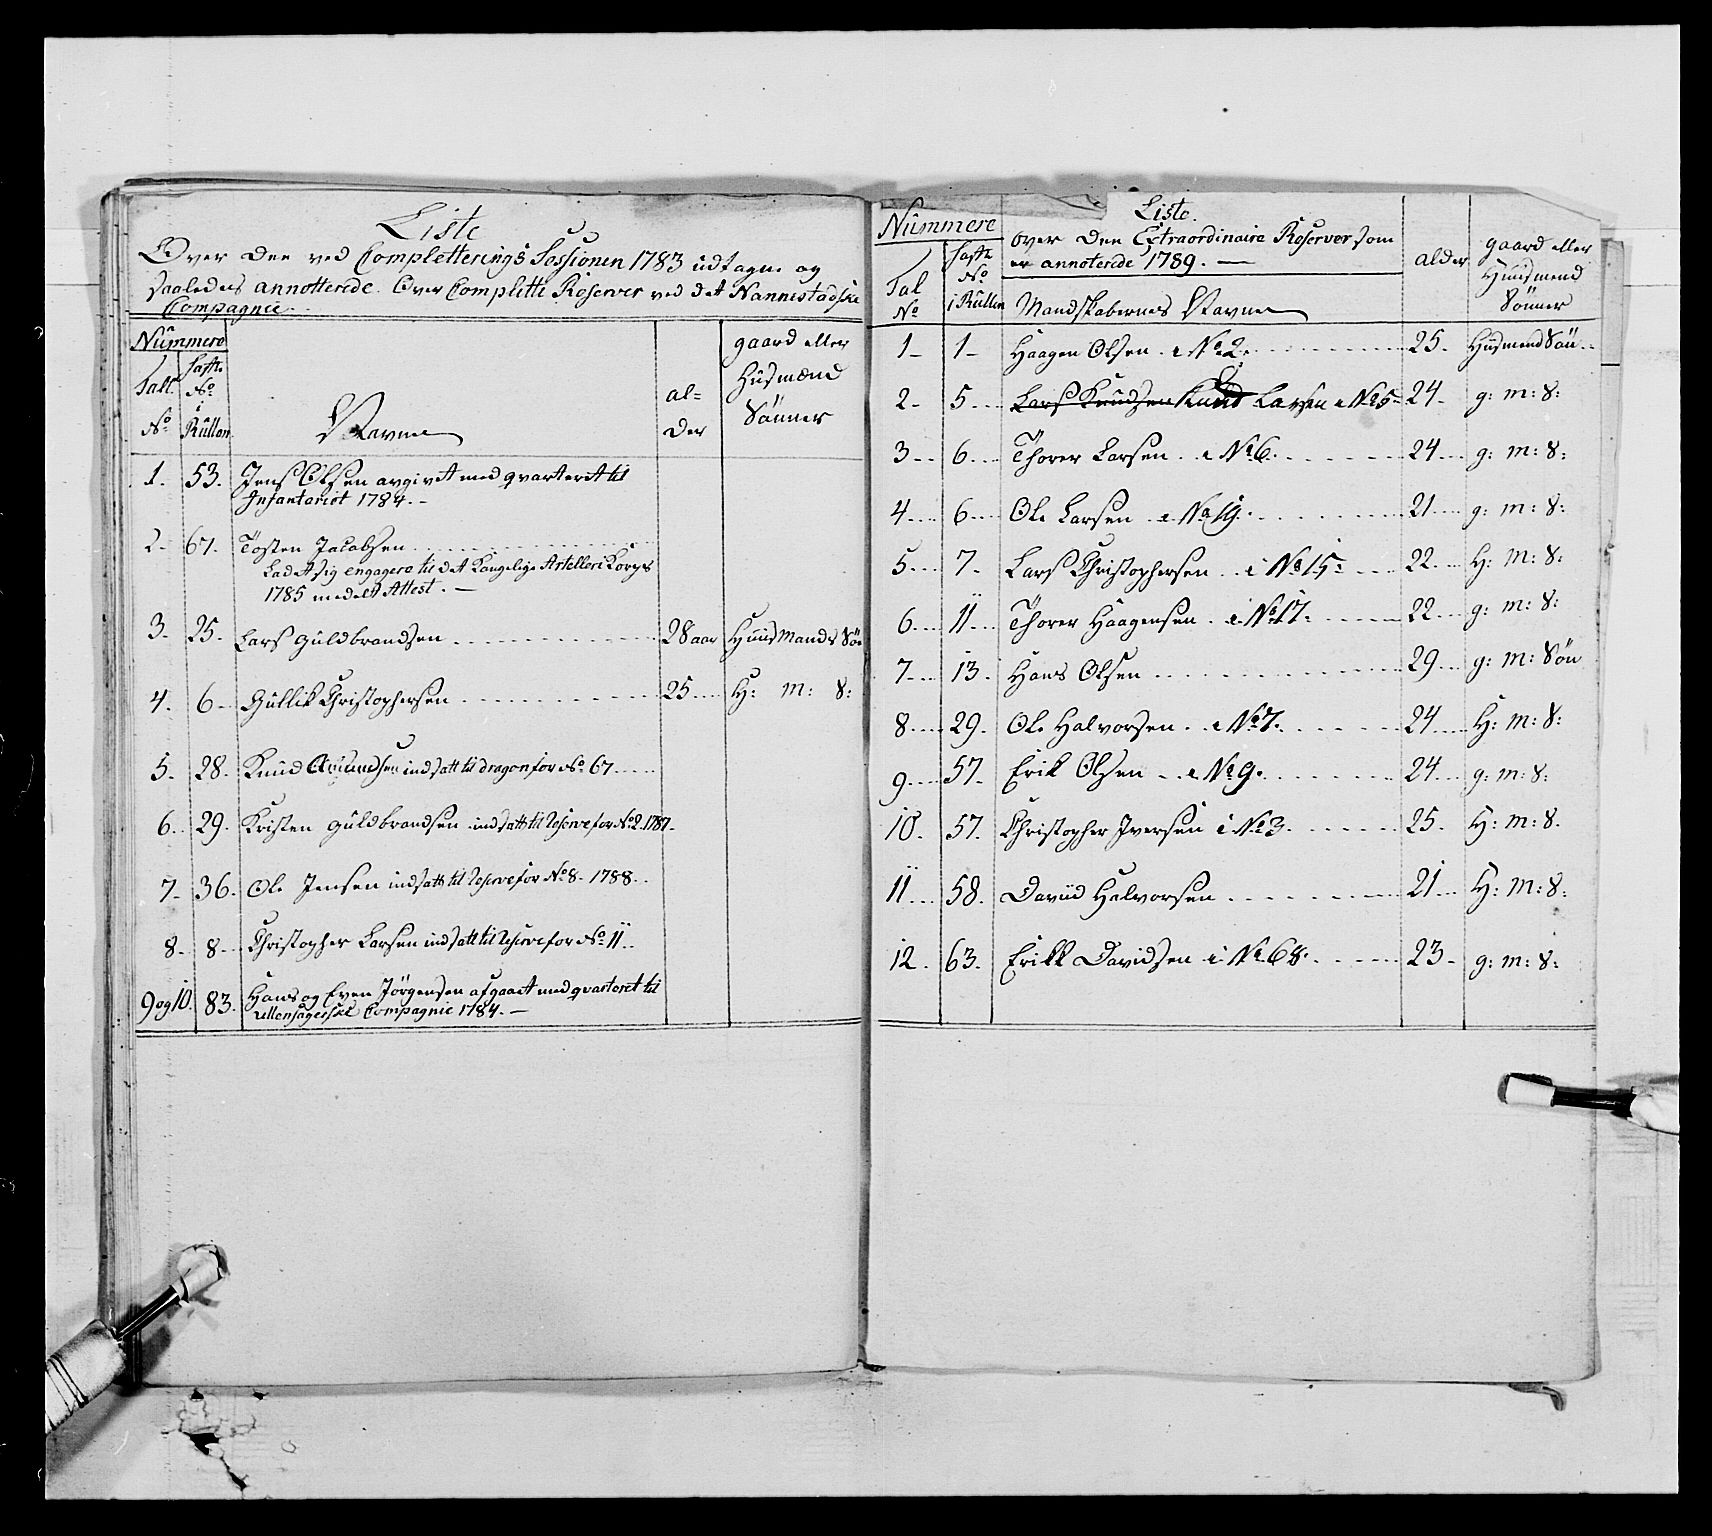 Liste
Over den ved Completterings Sessionen 1783 udtagne og
saaledes annotterede Over Complette Reserver ved det Nannestadske
Compagnie.
Nümmere
Talt No
No i Rüllen
Navne
al=
der
gaard eller
Hüsmænd
Sönner
1. 53. Jens Olsen avgivet med qvarteret til
Infanteriet 1784.
2. 67. Tosten Jacobsen
Ladet sig engagere til det Kongelige Artelleri Korps
1785 medelst Attest.
3. 25. Lars Güldbrandsen 28 aar Huusmands Sön
4. 6 Güllik Christophersen 25 H: m: S:
5. 28. Knud Amundsen indsatt til dragon for No 67
6. 29. Kristen Güldbrandsen indsatt til Reserve for No 2. 1787.
7. 36. Ole Jensen indsatt til Reserve for No 8. 1788.
8. 8. Christopher Larsen indsatt til Reserve for No 11.
9 og 10. 83. Hans og Even Jörgensen afgaaet med qvarteret til
Ullensagerske Compagnie 1784.
Nümmere
Tal
No
No
i Rüllen
Liste.
over den Extraordinaire Reserver som
er annoterede 1789.
Mandskabernes Navne
alder
gaard eller
Huusmend
Sönner
1 1 Haagen Olsen i No 2. 25. Hüsmend Sön
2 5 Lars Knudsen Knud Larsen i No 5 24 g: m: S:
3 6 Thorer Larsen i No 6. 24 g: m: S:
4 6 Ole Larsen i No 19. 21 g: m: S:
5 7. Lars Christophersen i No 15 22 H: m: S:
6 11 Thorer Haagensen i No 17. 22 g: m: S:
7 13. Hans Olsen 29 g: m: Sön
8 29. Ole Halvorsen i No 7. 24 H: m: S:
9 57. Erik Olsen i No 9. 24 g: m: S:
10. 57. Christopher Iversen i No 3. 25. H: m: S.
11 58. David Halvorsen 21 H: m: S:
12. 63. Erikk Davidsen i No 68. 23 g: m: S: